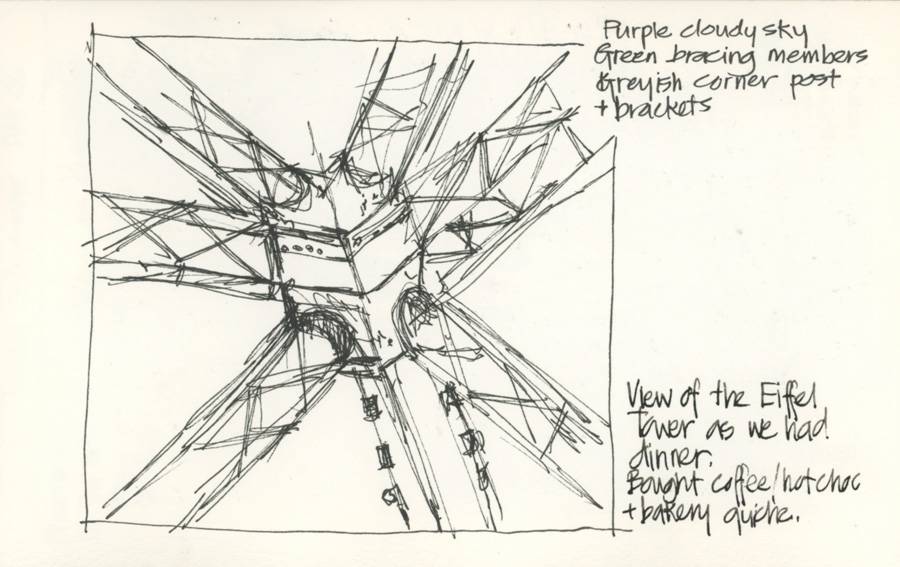 Purple cloudy sky
Green bracing members
Greyish corner post
+ brackets
View of the Eiffel
Tower as we had
dinner.
Bought coffee/hot choc
+ bakery quiche.